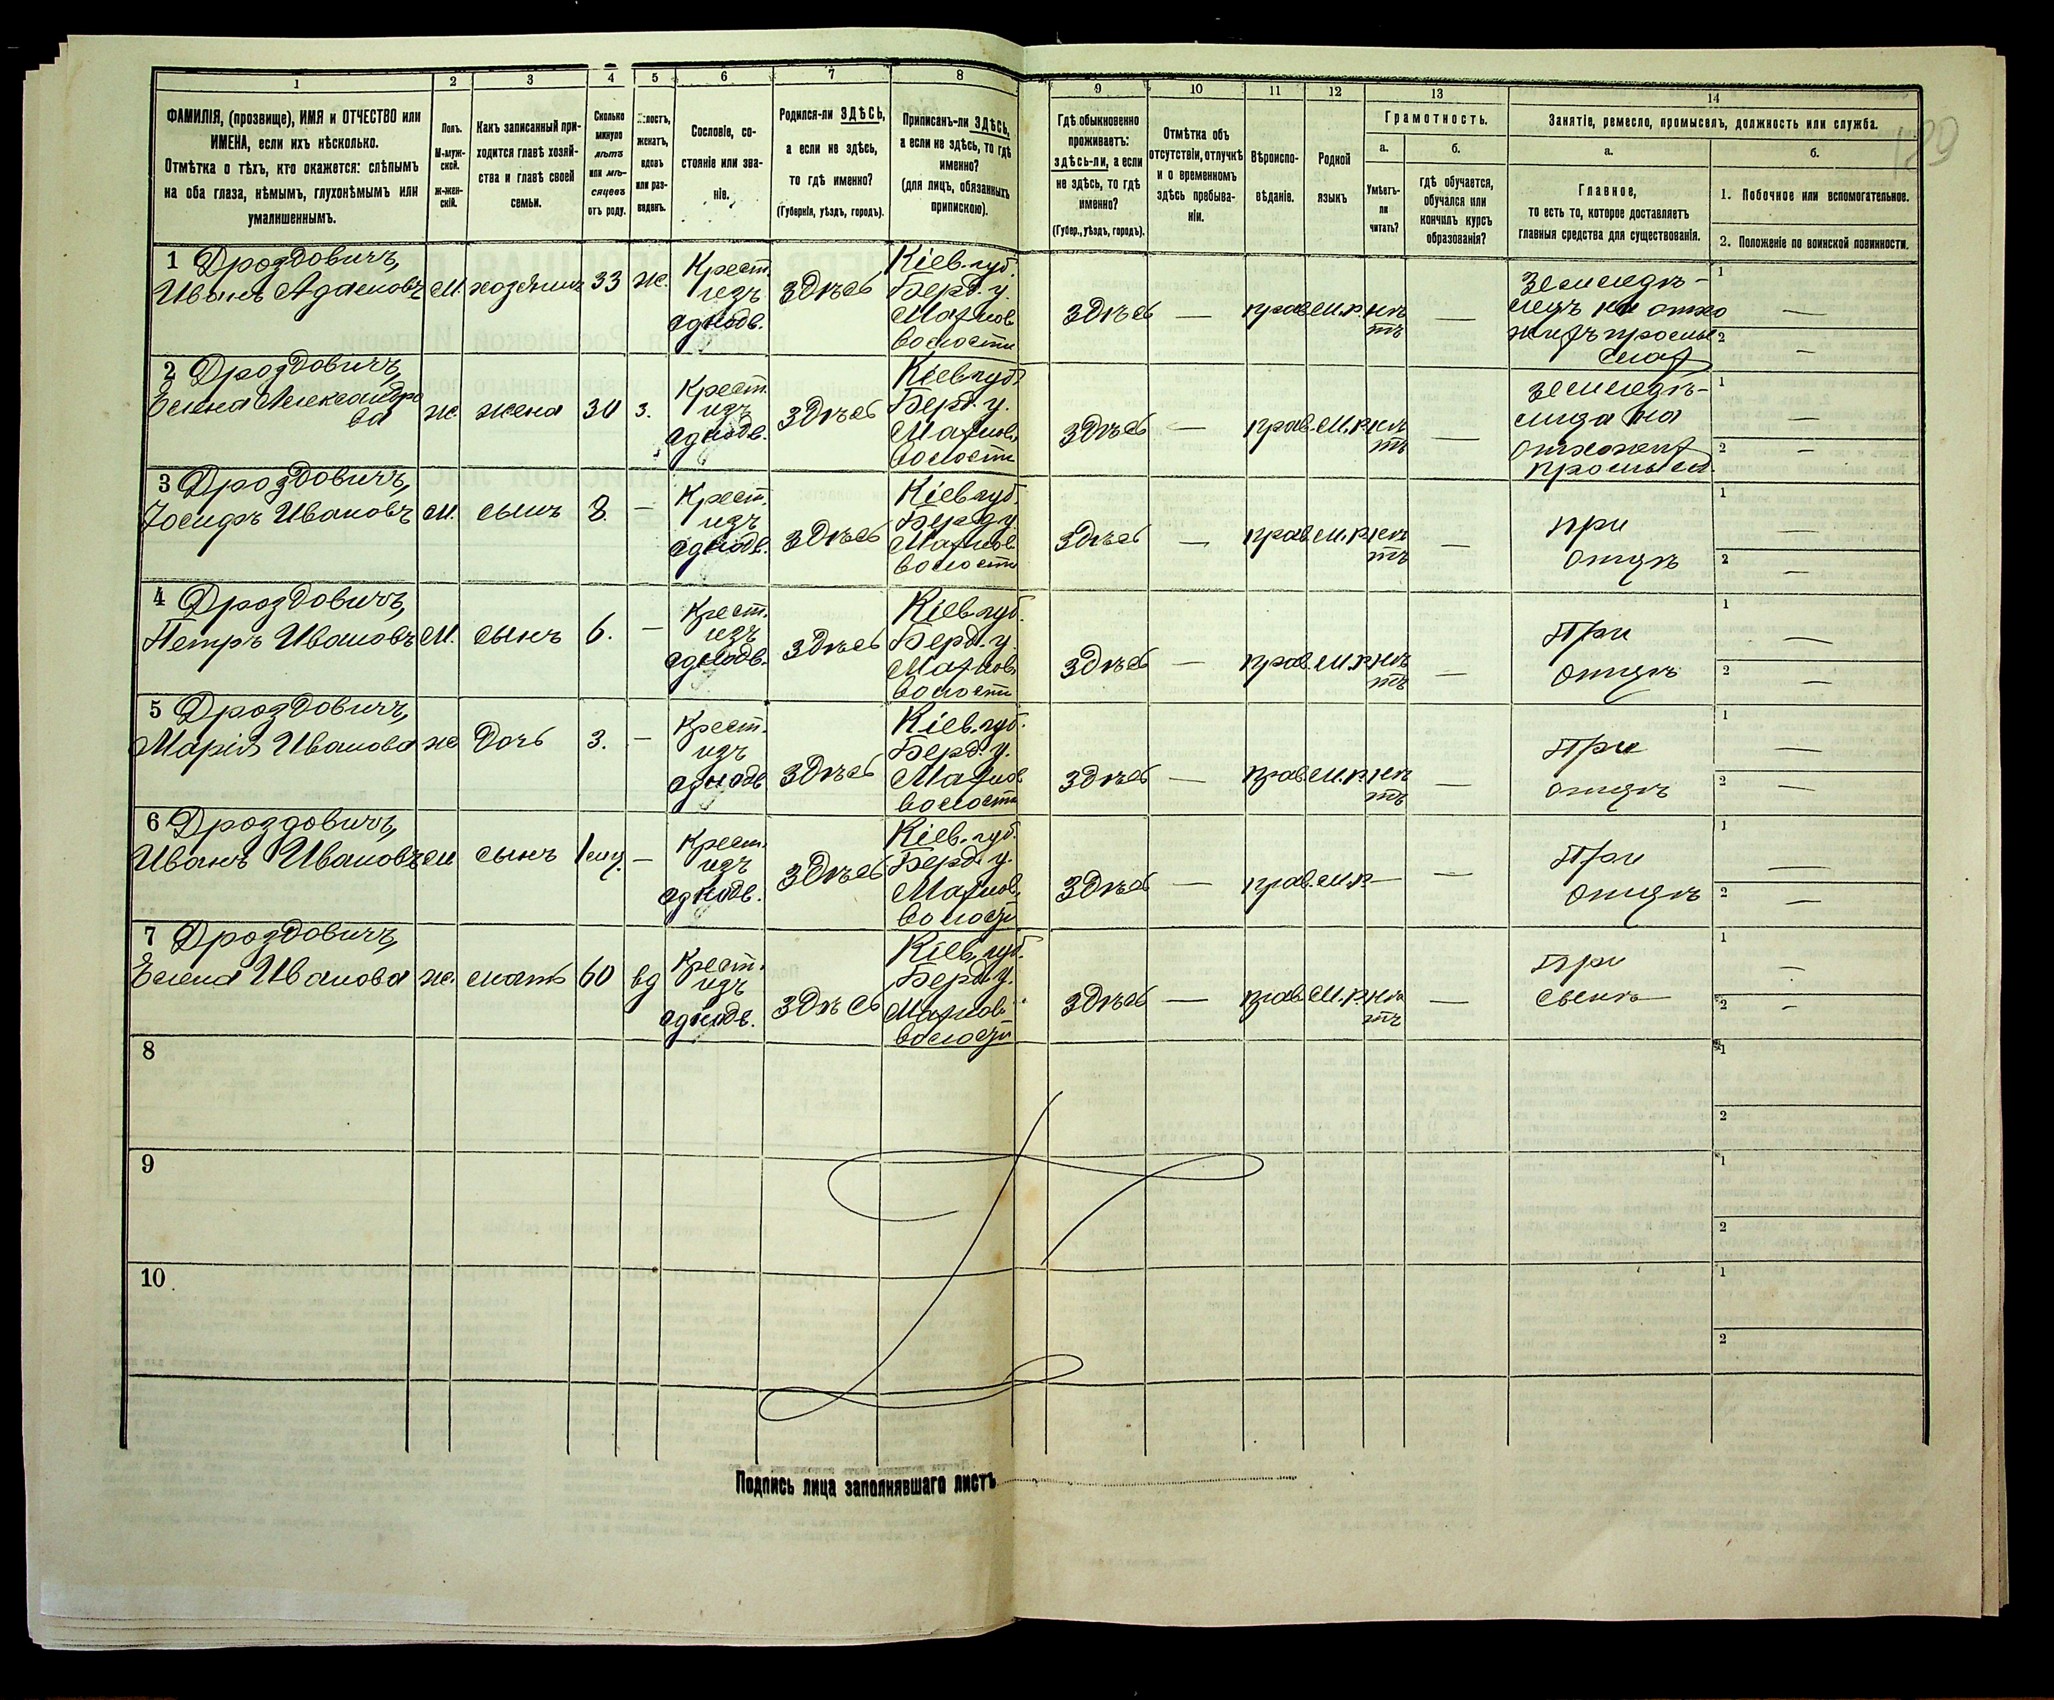 1
2
3
4
5
6
7
8
9
10
11
12
13
14
ФАМИЛІЯ, (прозвище), ИМЯ и ОТЧЕСТВО или
ИМЕНА, если ихъ нѣсколько.
Отмѣтка о тѣхъ, кто окажется: слѣпымъ
на оба глаза, нѣмымъ, глухонѣмымъ или
умалишеннымъ.
Полъ.
М-муж-
ской.
ж-жен-
скій.
Какъ записанный при-
ходится главѣ хозяй-
ства и главѣ своей
семьи.
Сколько
минуло
лѣтъ
или мѣ-
сяцевъ
отъ роду.
Холостъ,
женатъ,
вдовъ
или раз-
веденъ.
Сословіе, со-
стояніе или зва-
ніе.
Родился-ли ЗДѢСЬ,
а если не здѣсь,
то гдѣ именно?
(Губернія, уѣздъ, городъ).
Приписанъ-ли ЗДѢСЬ,
а если не здѣсь, то гдѣ
именно?
(для лицъ, обязанныхъ
припискою).
Гдѣ обыкновенно
проживаетъ:
здѣсь-ли, а если
не здѣсь, то гдѣ
именно?
(Губер., уѣздъ, городъ).
Отмѣтка объ
отсутствіи, отлучкѣ
и о временномъ
здѣсь пребыва-
ніи.
Вѣроиспо-
вѣданіе.
Родной
языкъ
Грамотность.
а.
Умѣетъ-
ли
читать?
б.
гдѣ обучается,
обучался или
кончилъ курсъ
образованія?
Занятіе, ремесло, промыселъ, должность или служба.
а.
Главное,
то есть то, которое доставляетъ
главныя средства для существованія.
б.
1. Побочное или вспомогательное.
2. Положеніе по воинской повинности.
1 Дроздовичъ,
Иванъ Адамовъ
м.
хозяинъ
33
ж.
Крест.
изъ
однодв.
здѣсь
Кіев. губ.
Берд. у.
Махнов.
волости
здѣсь
—
прав.
м.р.
нѣ
тъ
—
землед�ѣ-
лецъ на отхо
1
—
2
—
2 Дроздовичъ,
Елена Александро
ва
ж.
жена
30
з.
Крест.
изъ
однодв.
здѣсь
Кіев. губ.
Берд. у.
Махнов.
волости
здѣсь
—
прав.
м.р.
нѣ
тъ
—
землед�ѣ-
лица на
1
—
2
—
3 Дроздовичъ,
Іосифъ Ивановъ
м.
сынъ
8.
—
Крест.
изъ
однодв.
здѣсь
Кіев. губ.
Берд. у.
Махнов.
волости
здѣсь
—
прав.
м.р.
нѣ
тъ
—
при
отцѣ
1
—
2
—
4 Дроздовичъ,
Петръ Ивановъ
м.
сынъ
6.
—
Крест.
изъ
однодв.
здѣсь
Кіев. губ.
Берд. у.
Махнов.
волости
здѣсь
—
прав.
м.р.
нѣ
тъ
—
При
отцѣ
1
—
2
—
5 Дроздовичъ,
Марія Иванова
ж
дочь
3.
—
Крест.
изъ
однодв
здѣсь
Кіев. губ.
Берд. у.
Махнов
волости
здѣсь
—
прав.
м.р.
нѣ
тъ
—
При
отцѣ
1
—
2
—
6 Дроздовичъ,
Иванъ Ивановъ
м
сынъ
1 мц.
—
Крест.
изъ
однодв.
здѣсь
Кіев. губ.
Берд. у.
Махнов.
волости
здѣсь
—
прав.
м.р
—
—
При
отцѣ
1
—
2
—
7 Дроздовичъ,
Елена Иванова
ж.
мать
60
вд
Крест.
изъ
однодв.
здѣсь
Кіев. губ.
Берд. у.
Махнов.
волости
здѣсь
—
прав.
м.р.
нѣ
тъ
—
при
сынѣ
1
—
2
—
8
1
2
9
1
2
10
1
2
Подпись лица заполнявшаго листъ